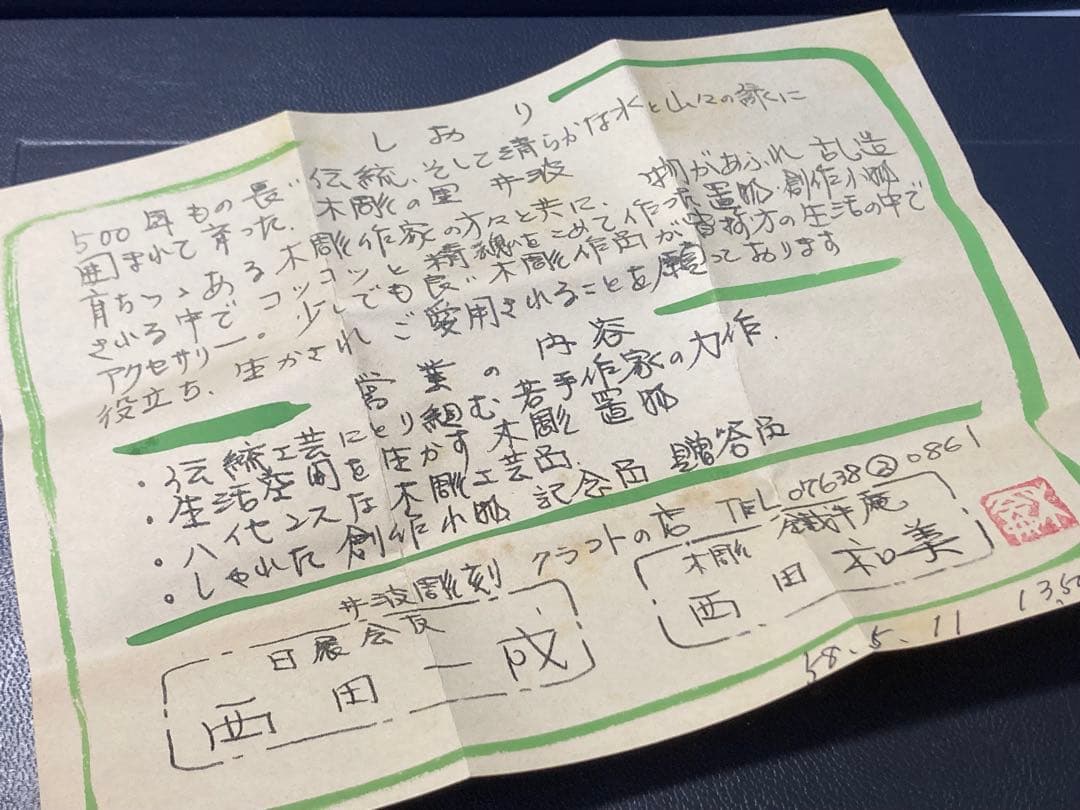 しおり
500年もの長い伝統、そして清らかな水と山々の緑くに
囲まれて育った、木彫の里 井波
育ちつゝある木彫作家の方々と共に、物があふれ乱造
さふる中で、コツコツと精魂をこめて作った置物・創作小物
アクセサリー。少しでも良い木彫作品が皆様方の生活の中で
役立ち、生かされご愛用されることを願っております
営業の内容
・伝統工芸にとり組む若手作家の力作.
・生活空間を生かす木彫置物
・ハイセンスな木彫工芸品
・しゃれた創作小物 記念品 贈答品
井波彫刻 クラフトの店 TEL 07638②0861
日展会友
西田一成
木彫
西田和美
58.5.11